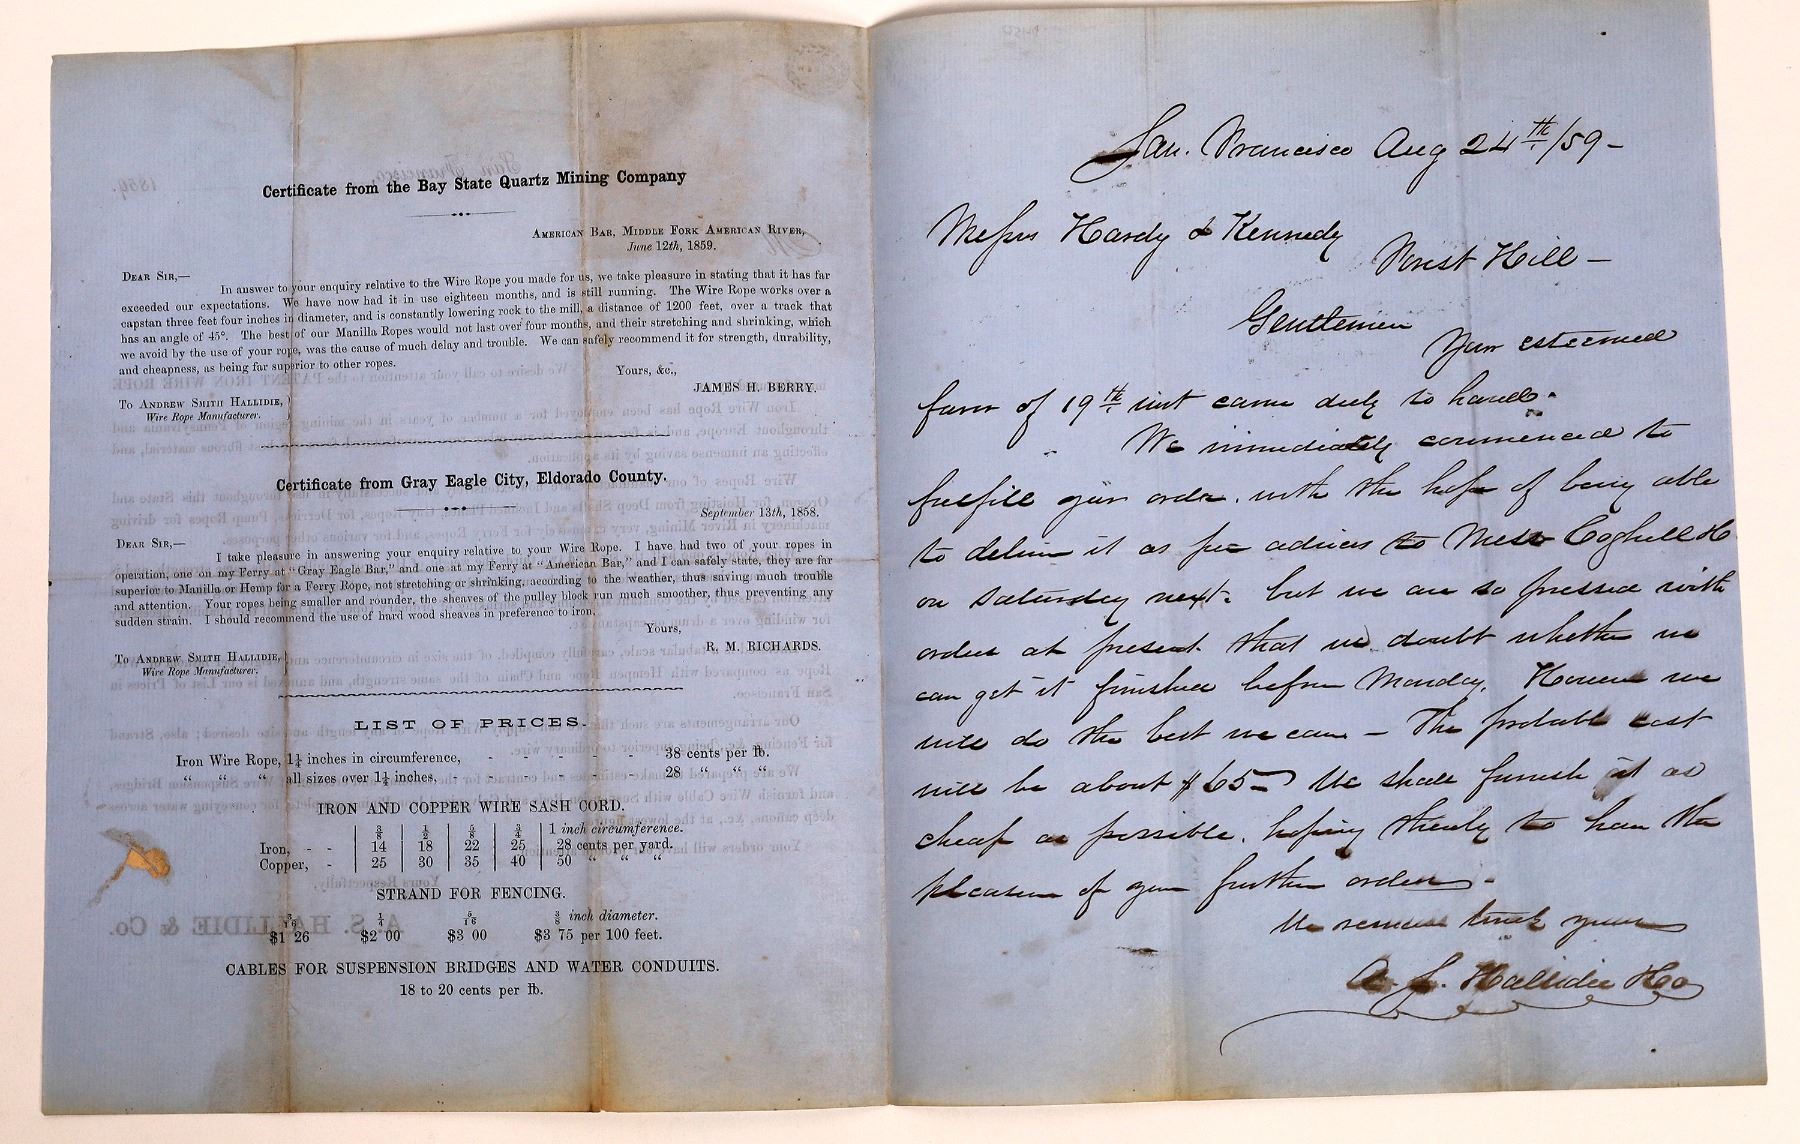 Certificate from the Bay State Quartz Mining Company
American Bar, Middle Fork American River,
June 12th, 1859.
Dear Sir,—
In answer to your enquiry relative to the Wire Rope you made for us, we take pleasure in stating that it has far
exceeded our expectations. We have now had it in use eighteen months, and is still running. The Wire Rope works over a
capstan three feet four inches in diameter, and is constantly lowering rock to the mill, a distance of 1200 feet, over a track that
has an angle of 45°. The best of our Manilla Ropes would not last over four months, and their stretching and shrinking, which
we avoid by the use of your rope, was the cause of much delay and trouble. We can safely recommend it for strength, durability,
and cheapness, as being far superior to other ropes.
Yours, &c.,
JAMES H. BERRY.
To Andrew Smith Hallidie,
Wire Rope Manufacturer.
Certificate from Gray Eagle City, Eldorado County.
September 13th, 1858.
Dear Sir,—
I take pleasure in answering your enquiry relative to your Wire Rope. I have had two of your ropes in
operation, one on my Ferry at "Gray Eagle Bar," and one at my Ferry at "American Bar," and I can safely state, they are far
superior to Manilla or Hemp for a Ferry Rope, not stretching or shrinking, according to the weather, thus saving much trouble
and attention. Your ropes being smaller and rounder, the sheaves of the pulley block run much smoother, thus preventing any
sudden strain. I should recommend the use of hard wood sheaves in preference to iron.
Yours,
R. M. RICHARDS.
To Andrew Smith Hallidie,
Wire Rope Manufacturer.
LIST OF PRICES.
Iron Wire Rope, 1¼ inches in circumference, - - - - - 38 cents per lb.
" " " all sizes over 1¼ inches, - - - - - - 28 " " "
IRON AND COPPER WIRE SASH CORD.
⅜ ½ ⅝ ¾ 1 inch circumference.
Iron, - - 14 18 22 25 28 cents per yard.
Copper, - 25 30 35 40 50 " " "
STRAND FOR FENCING.
3/16 ¼ 5/16 ⅜ inch diameter.
$1 26 $2 00 $3 00 $3 75 per 100 feet.
CABLES FOR SUSPENSION BRIDGES AND WATER CONDUITS.
18 to 20 cents per lb.
San. Francisco Aug 24th/59-
Messrs Hardy & Kennedy
Forest Hill -
Gentlemen
Your esteemed
favor of 19th inst came duly to hand.
We immediately commenced to
fulfill your order. with the hope of being able
to deliver it as per advices to Messr Coghill & Co
on Saturday next. but we are so pressed with
orders at present that we doubt whether we
can get it finished before Monday. However we
will do the best we can - The probable cost
will be about $65- We shall furnish it as
cheap as possible. hoping thereby to have the
pleasure of your further orders -
We remain truly yours
A. S. Hallidie & Co